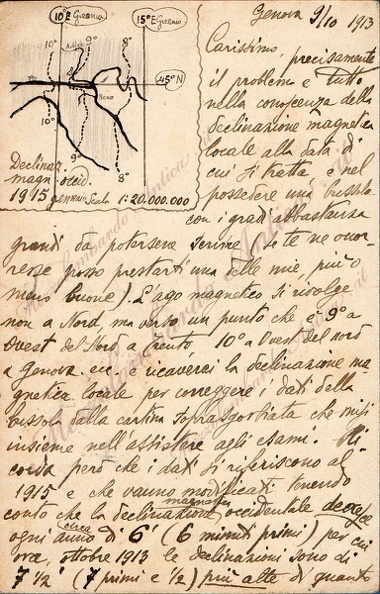 Genova 9/10 1913
10° E Greenw
15° E Greenw
10°
9°
8°
Adige
Po
Reno
45° N
10°
9°
8°
Declinaz.
magn. occid.
1915 gennaio Scala 1:20.000.000
Carissimo, precisamente
il problema è tutto
nella conoscenza della
declinazione magnetica
locale alla data di
cui si tratta e nel
possedere una bussola
con i gradi abbastanza
grandi da potersene servire (se te ne occor-
resse posso prestarti una delle mie, più o
meno buone). L'ago magnetico si rivolge
non a Nord, ma verso un punto che è 9° a
Ovest del Nord a Trento, 10° a Ovest del nord
a Genova ecc. e ricaverai la declinazione ma-
gnetica locale per correggere i dati della
bussola dalla cartina soprasgorbiata che misi
insieme nell'assistere agli esami. Ri-
corda però che i dati si riferiscono al
1915 e che vanno modificati tenendo
conto che la declinazione magnetica occidentale decresce
ogni anno di circa 6' (6 minuti primi) per cui
ora, ottobre 1913 le declinazioni sono di
7' ½ (7 primi e ½) più alte di quanto